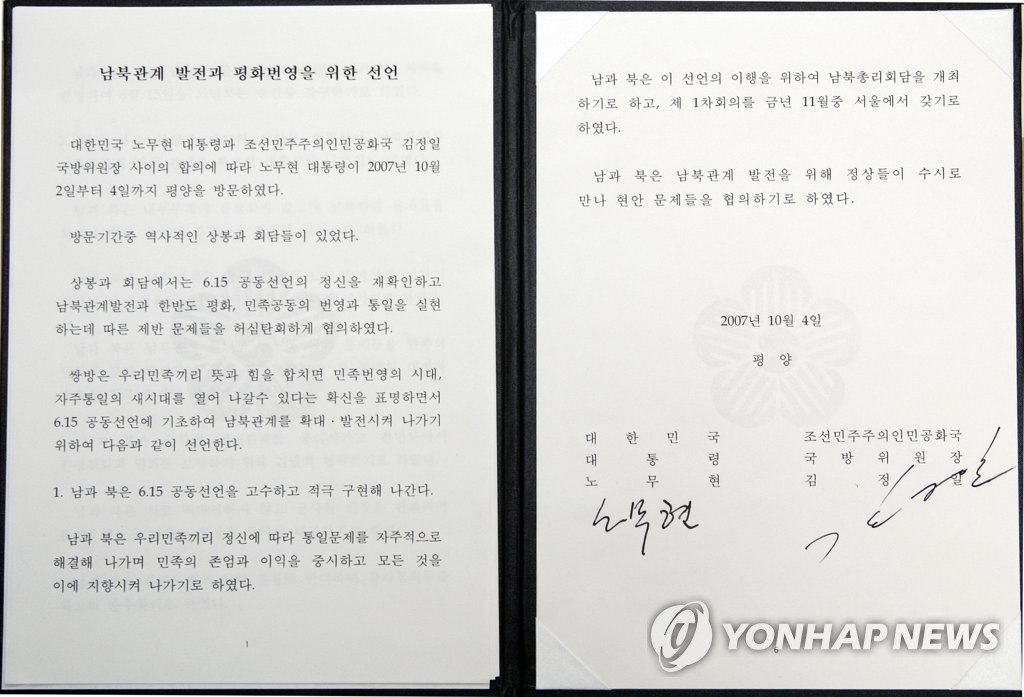 남북관계 발전과 평화번영을 위한 선언
대한민국 노무현 대통령과 조선민주주의인민공화국 김정일
국방위원장 사이의 합의에 따라 노무현 대통령이 2007년 10월
2일부터 4일까지 평양을 방문하였다.
방문기간중 역사적인 상봉과 회담들이 있었다.
상봉과 회담에서는 6.15 공동선언의 정신을 재확인하고
남북관계발전과 한반도 평화, 민족공동의 번영과 통일을 실현
하는데 따른 제반 문제들을 허심탄회하게 협의하였다.
쌍방은 우리민족끼리 뜻과 힘을 합치면 민족번영의 시대,
자주통일의 새시대를 열어 나갈수 있다는 확신을 표명하면서
6.15 공동선언에 기초하여 남북관계를 확대·발전시켜 나가기
위하여 다음과 같이 선언한다.
1. 남과 북은 6.15 공동선언을 고수하고 적극 구현해 나간다.
남과 북은 우리민족끼리 정신에 따라 통일문제를 자주적으로
해결해 나가며 민족의 존엄과 이익을 중시하고 모든 것을
이에 지향시켜 나가기로 하였다.
1
남과 북은 이 선언의 이행을 위하여 남북총리회담을 개최
하기로 하고, 제 1차회의를 금년 11월중 서울에서 갖기로
하였다.
남과 북은 남북관계 발전을 위해 정상들이 수시로
만나 현안 문제들을 협의하기로 하였다.
2007년 10월 4일
평 양
대 한 민 국 조선민주주의인민공화국
대 통 령 국 방 위 원 장
노 무 현 김 정 일
노무현
YONHAP NEWS
6